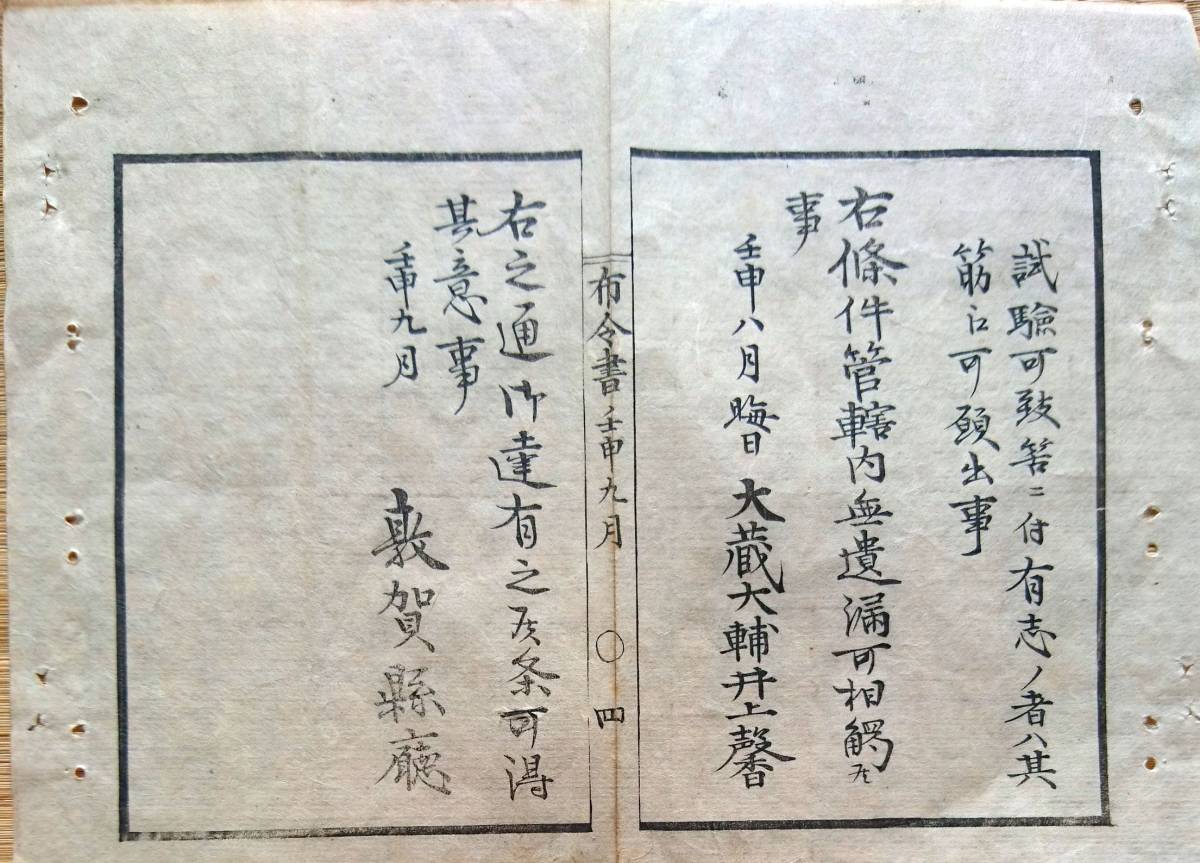 試驗可致筈ニ付有志ノ者ハ其
筋江可願出事
右條件管轄内無遺漏可相觸候
事
壬申八月晦日 大蔵大輔井上馨
布令書 壬申九月 〇 四
右之通御達有之候条可得
其意事
壬申九月
敦賀縣廳